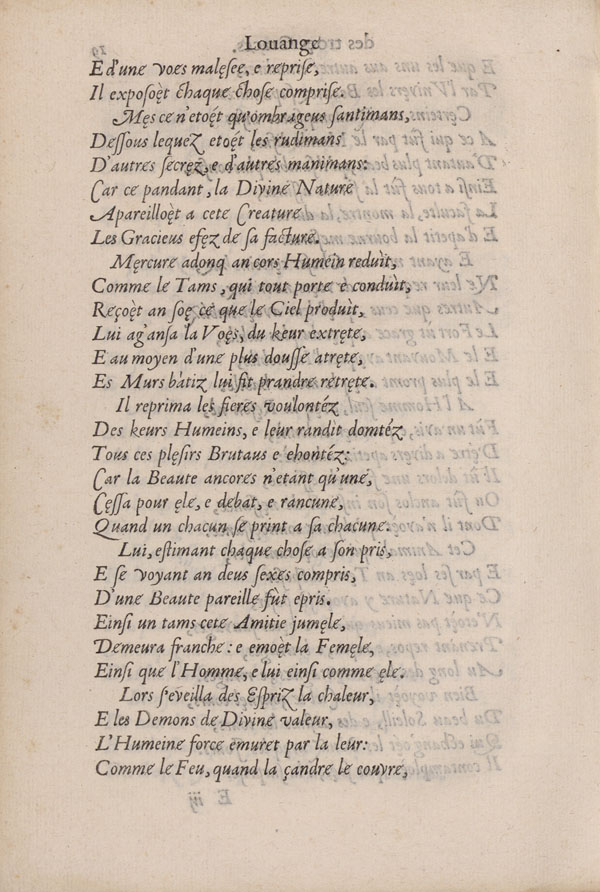 Louange
E d'une voęs malęseę, e reprise,
Il exposoęt chaque chose comprise.
Męs ce n'etoęt qu'ombrageus santimans,
Dessous lequez etoęt les rudimans
D'autres secręz, e d'autres manimans:
Car ce pandant, la Divine Nature
Apareilloęt a cete Creature
Les Gracieus efęz de sa facture.
Męrcure adonq an cors Humein reduìt,
Comme le Tams, qui tout porte e conduìt,
Reçoęt an soę ce que le Ciel produìt,
Lui ag'ansa la Voęs, du keur extręte,
E au moyen d'une plus dousse atręte,
Es Murs bátiz lui fit prandre retręte.
Il reprima les fieres voulontéz
Des keurs Humeins, e leur randit domtéz
Tous ces plęsirs Brutaus e ehontéz:
Car la Beaute ancores n'etant qu'une,
Cęssa pour ęle, e debat, e rancune,
Quand un chacun se print a sa chacune.
Lui, estimant chaque chose a son pris,
E se voyant an deus sexes compris,
D'une Beaute pareille fùt epris.
Einsi un tams cete Amitie jumęle,
Demeura franche: e emoęt la Femęle,
Einsi que l'Homme, e lui einsi comme ęle.
Lors s'eveilla des Espriz la chaleur,
E les Demons de Divine valeur,
L'Humeine force emuret par la leur:
Comme le Feu, quand la çandre le couvre,